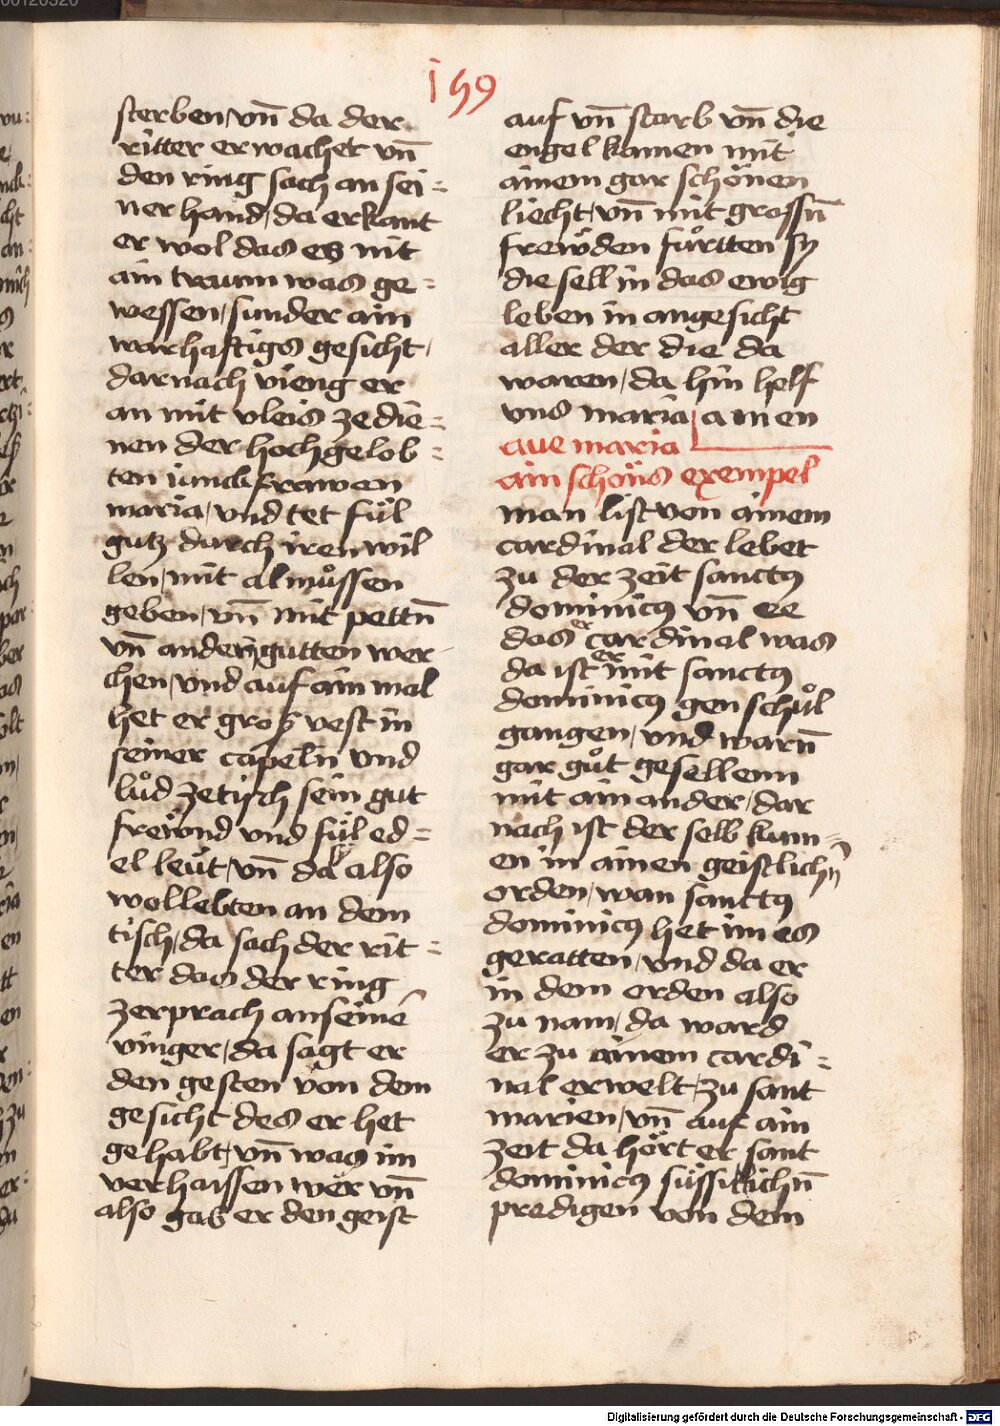 00120320
i59
sterben / vn̄ da der
ritter erwachet vn̄
den ring sach an sei=
ner hand / da erkant
er wol das es nit
ain traum was ge=
wessen / sunder ain
warhaftigs gesicht /
darnach vieng er
an mit vleis ze die=
nen der hochgelob=
ten iunckfrawen
maria / vnd tet fuͤl
gutz durch iren wil
len / mit almuͦssen
geben / vn̄ mit pettn̄
vn̄ andern gutten wer
chen / vnd auf ain mal
het er gros vest in
seiner capeln vnd
luͦd ze tisch sein gut
freẅnd vnd fuͤl ed=
el leüt / vn̄ da sy also
wollebten an dem
tisch / da sach der rit=
ter das der ring
zerprach an seinē
vinger / da sagt er
den gesten von dem
gesicht des er het
gehabt / vn̄ was im
verhaissen wer vn̄
also gab er den geist
auf vn̄ starb vn̄ die
engel kamen mit
ainem gar schönen
liecht / vn̄ mit grossn̄
freẅden fuͦrtten sy
die sell in das ewig
leben in angesicht
aller der die da
waren / da hin helf
vns maria / amen
aue maria
ain schöns exempel
man list von ainem
cardinal der lebet
zu der zeit sanctus
dominicus vn̄ ee
das er cardinal was
da ist er mit sanctus
dominicus gen schuͦl
gangen / vnd warn̄
gar guͦt gesellenn
mit ainander / dar
nach ist der selb kum=
en in ainen geistlichn̄
orden / wan sanctus
dominicus het im es
geratten / vnd da er
in dem orden also
zu nam / da ward
er zu ainem cardi=
nal erwelt / zu sant
marien / vn̄ auf ain
zeit da hört er sant
dominicus süssiklichn̄
predigen von dem
Digitalisierung gefördert durch die Deutsche Forschungsgemeinschaft - DFG